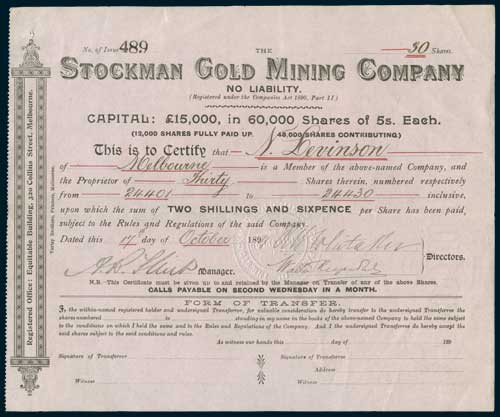 No. of Issue 489 THE 30 Shares.
STOCKMAN GOLD MINING COMPANY
NO LIABILITY.
(Registered under the Companies Act 1890, Part II)
CAPITAL: £15,000, in 60,000 Shares of 5s. Each.
(12,000 SHARES FULLY PAID UP. 48,000 SHARES CONTRIBUTING)
This is to Certify that N. Levinson
of Melbourne is a Member of the above-named Company, and
the Proprietor of Thirty Shares therein, numbered respectively
from 24401 to 24430 inclusive,
upon which the sum of TWO SHILLINGS AND SIXPENCE per Share has been paid,
subject to the Rules and Regulations of the said Company.
Dated this day of October 189
Manager. Directors.
N.B.—This Certificate must be given up to and retained by the Manager on Transfer of any of the above Shares.
CALLS PAYABLE ON SECOND WEDNESDAY IN A MONTH.
FORM OF TRANSFER.
I, the within-named registered holder and undersigned Transferror, for valuable consideration do hereby transfer to the undersigned Transferree the shares
numbered to standing in my name in the books of the above-named Company to hold the same subject
to the conditions on which I held the same and to the Rules and Regulations of the Company. And I the undersigned Transferree do hereby accept the said
shares subject to the said conditions and rules.
As witness our hands this day of 189
Signature of Transferror Signature of Transferree
Address Address
Witness Witness
Registered Office: Equitable Building, 320 Collins Street, Melbourne.
Varley Brothers, Printers, Melbourne.